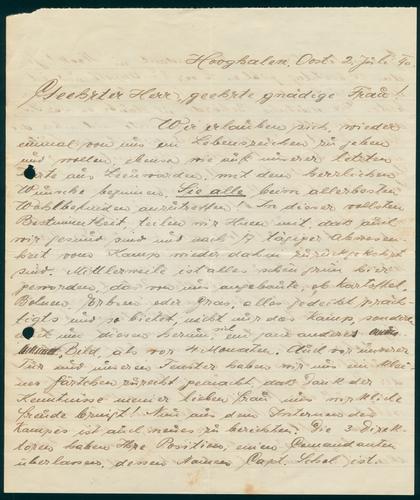 Hooghalen, Oost 2. Juli 40.
Geehrter Herr, geehrte gnädige Frau!
Wir erlauben sich, wieder
einmal von uns ein Lebenszeichen zu geben
und wollen, ebenso wie auf unserer letzten
Karte aus Leeuwarden, mit dem herzlichen
Wunsche beginnen, Sie alle beim allerbesten
Wohlbefinden anzutreffen. In dieser vollsten
Bestimmtheit, teilen wir Ihnen mit, daß auch
wir gesund sind und nach 17 tägiger Abwesen-
heit vom Kamp wieder dahin zurückgekehrt
sind. Mittlerweile ist alles schön grün hier
geworden, das von uns angebaute, ob Kartoffel,
Bohnen, Erbsen oder Gras, alles gedeiht präch-
tigst und so bietet, nicht nur das Kamp, sondern
um diesen herum, mit ein ganz anderes
Bild, als vor 4 Monaten. Auch vor unserer
Tür und unseren Fenster haben wir uns ein klei-
nes Gärtchen zurecht gemacht, daß dank der
Kenntnisse meiner lieben Frau uns wirkliche
Freude bringt! Nun aus dem Internen des
Kampes ist auch neues zu berichten. Die 3 Direk-
toren haben Ihre Position, einen Comandanten
überlassen, dessen Namen Capt. Schol ist.